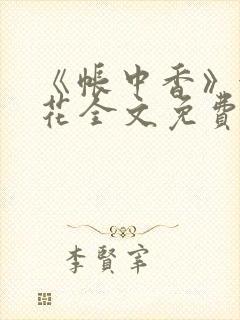 《帐中香》
花全文免費
李賢宰